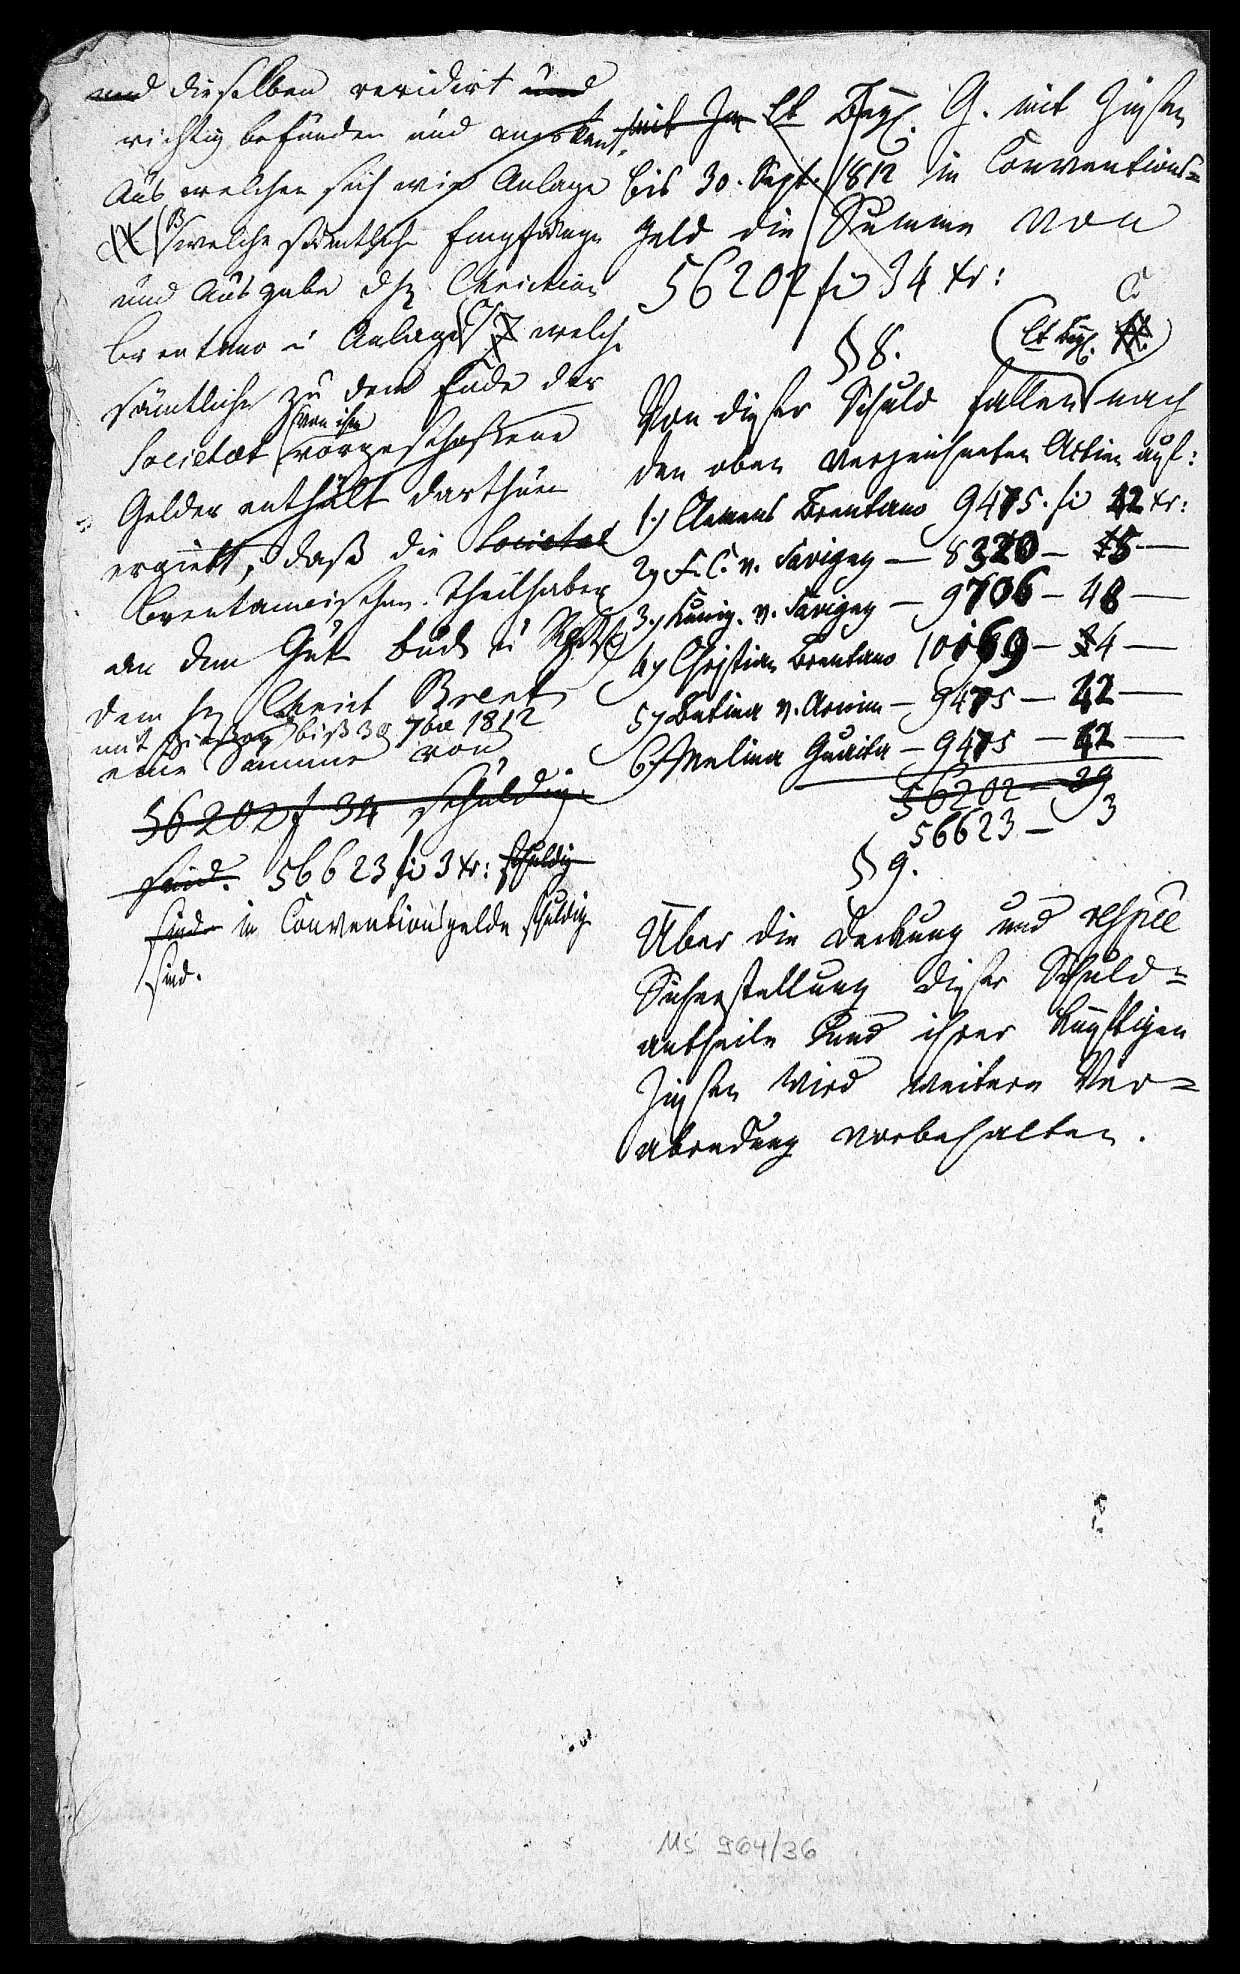 und dieselben revidirt und
richtig befunden und anerkant,
Aus welchen sich wie Anlage
B welche sämtliche Empfänge
und Ausgabe des H. Christian
Brentano u Anlage welche
sämtliche zu dem Ende der
Societæt von ihm vorgeschossene
Gelder enthält darthuen
ergiebt, daß die Societæt
Brentanoischen Theilhaber
an dem Gute Buck
dem H. Christ Brent
mit Zinßen biß 30 7bre 1812
eine Summe von
56202 f 34 schuldig
sind. 56623 f 3 xr: schuldig
sind in Conventionsgelde schuldig
sind.
lt Beyl. G. mit Zinsen
bis 30. Sept. 1812 in Conventions=
geld die Summe von
56202 f 34 xr:
C
§ 8. (lt Beyl.
Von dieser Schuld fallen nach
den oben verzeichneten Actien auf:
1.) Clemens Brentano 9475. f 42 xr:
2.) F. C. v. Savigny — 8320 — 15 —
3.) Kunig. v. Savigny — 9706 — 48 —
4.) Christian Brentano 10169 — 34 —
5.) Betina v. Arnim — 9475 — 42 —
6.) Melina Guaita — 9475 — 42 —
56202 — 29
56623 — 3
§ 9.
Über die Deckung und respce
Sicherstellung dieser Schuld=
antheile und ihrer künftigen
Zinsen wird weitere Ver=
abredung vorbehalten.
Ms 964/36